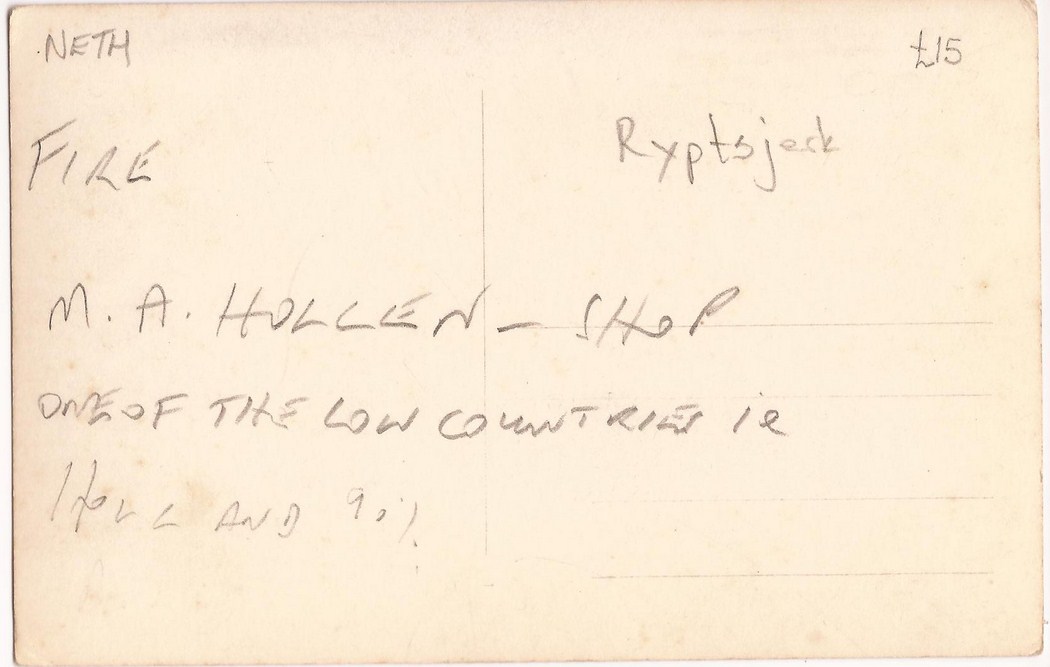 NETH
£15
FIRE
Ryptsjerk
M. A. HOLLEN - SHOP
ONE OF THE LOW COUNTRIES ie
HOLLAND